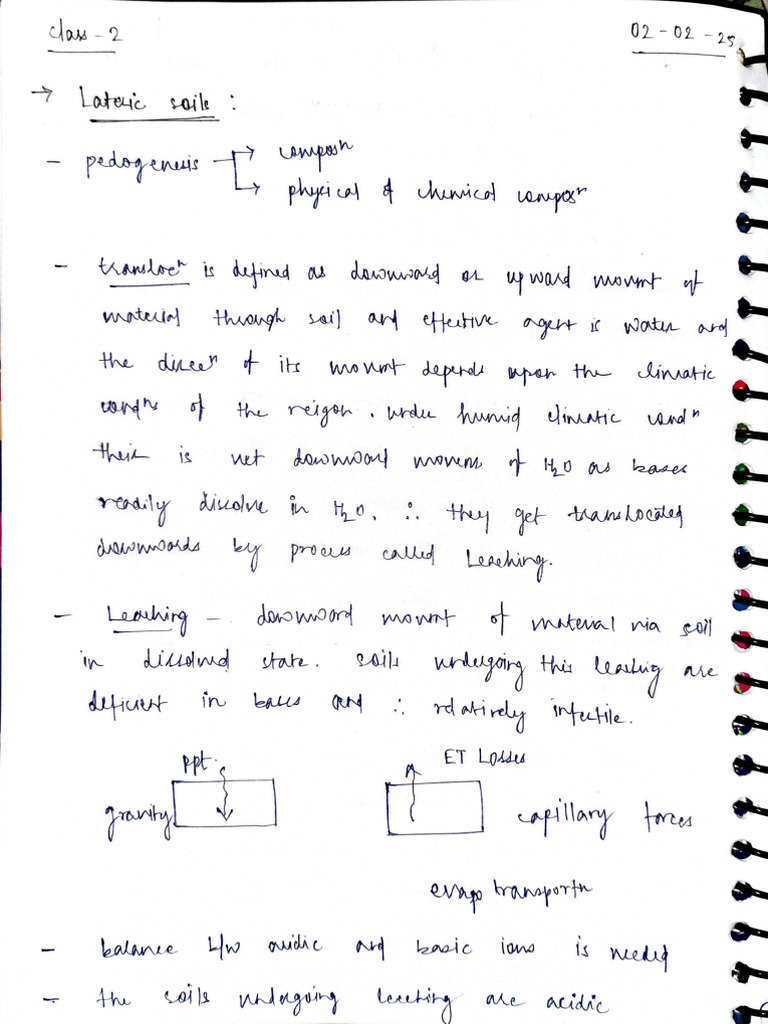 Class - 2
02 - 02 - 25
→ Lateric soils :
- pedogenesis → composⁿ
→ physical & chemical composⁿ
- translocⁿ is defined as downward or upward movmt of
material through soil and effective agent is water and
the direcⁿ of its movmt depends upon the climatic
condⁿs of the reigon. under humid climatic condⁿ
their is net downward movem of H₂O as bases
readily dissolve in H₂O. ∴ they get translocated
downwards by process called Leaching.
- Leaching - downward movmt of material via soil
in dissolved state. soils undergoing this leaching are
deficient in bases and ∴ relatively infertile.
ppt.
ET Losses
gravity
capillary forces
evapo transportn
- balance b/w acidic and basic ions is needed
- the soils undergoing leeching are acidic